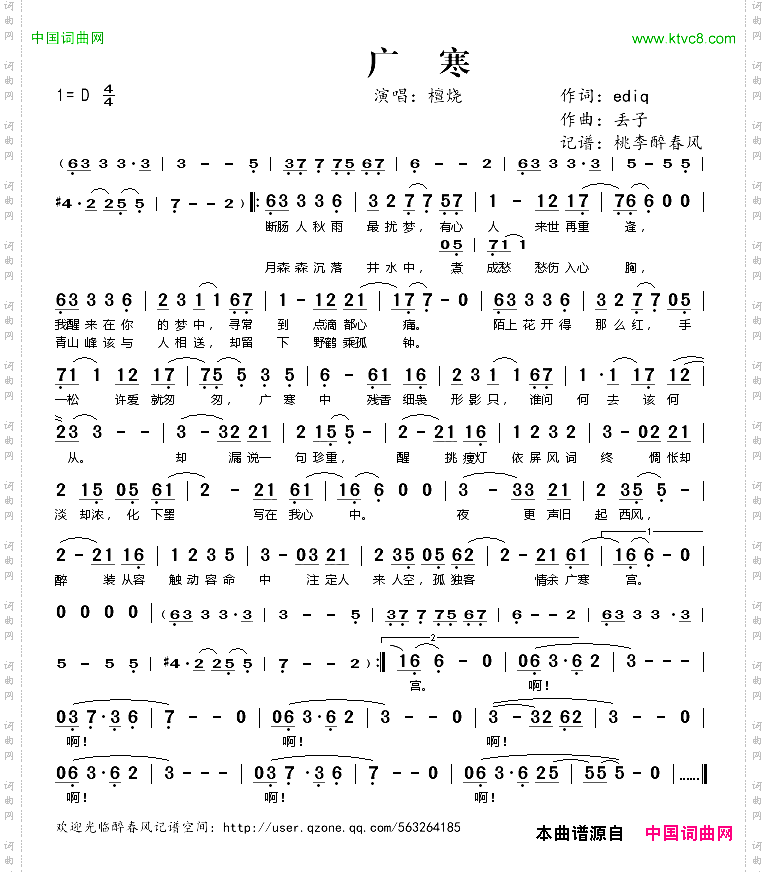 中国词曲网
www.ktvc8.com
广 寒
1=D 4/4
演唱：檀烧
作词：ediq
作曲：丢子
记谱：桃李醉春风
(6 3 3 3·3 | 3 - - 5 | 3 7 7 7 5 6 7 | 6 - - 2 | 6 3 3 3·3 | 5 - - 5 |
#4·2 2 5 5 | 7 - - 2) ‖: 6 3 3 3 6 | 3 2 7 7 5 7 | 1 - 1 2 1 7 | 7 6 6 0 0 |
断肠人秋雨 最扰梦，有心 人 来世再重 逢，
0 5 | 7 1 1
月森森沉落 井水中，煮 成愁 愁伤入心 胸，
6 3 3 3 6 | 2 3 1 1 6 7 | 1 - 1 2 2 1 | 1 7 7 - 0 | 6 3 3 3 6 | 3 2 7 7 0 5 |
我醒来在你 的梦中，寻常 到 点滴都心 痛。 陌上花开得 那么红，手
青山峰该与 人相送，却留 下 野鹤乘孤 钟。
7 1 1 1 2 1 7 | 7 5 5 3 5 | 6 - 6 1 1 6 | 2 3 1 1 6 7 | 1·1 1 7 1 2 |
一松 许爱就匆 匆，广寒 中 残香细袅 形影只，谁问 何去该何
2 3 3 - - | 3 - 3 2 2 1 | 2 1 5 5 - | 2 - 2 1 1 6 | 1 2 3 2 | 3 - 0 2 2 1 |
从。 却 漏说一 句珍重， 醒 挑瘦灯 依屏风词 终 惆怅却
2 1 5 0 5 6 1 | 2 - 2 1 6 1 | 1 6 6 0 0 | 3 - 3 3 2 1 | 2 3 5 5 - |
淡却浓，化下墨 写在我心 中。 夜 更声旧 起西风，
2 - 2 1 1 6 | 1 2 3 5 | 3 - 0 3 2 1 | 2 3 5 0 5 6 2 | 2 - 2 1 6 1 | 1 6 6 - 0 |
醉 装从容 触动容命 中 注定人 来人空，孤独客 情余广寒 宫。
0 0 0 0 | (6 3 3 3·3 | 3 - - 5 | 3 7 7 7 5 6 7 | 6 - - 2 | 6 3 3 3·3 |
5 - - 5 | #4·2 2 5 5 | 7 - - 2) :‖ 1 6 6 - 0 | 0 6 3·6 2 | 3 - - - |
宫。 啊！
0 3 7·3 6 | 7 - - 0 | 0 6 3·6 2 | 3 - - 0 | 3 - 3 2 6 2 | 3 - - 0 |
啊！ 啊！ 啊！
0 6 3·6 2 | 3 - - - | 0 3 7·3 6 | 7 - - 0 | 0 6 3·6 2 5 | 5 5 5 - 0 | ……‖
啊！ 啊！ 啊！
欢迎光临醉春风记谱空间：http://user.qzone.qq.com/563264185
本曲谱源自 中国词曲网